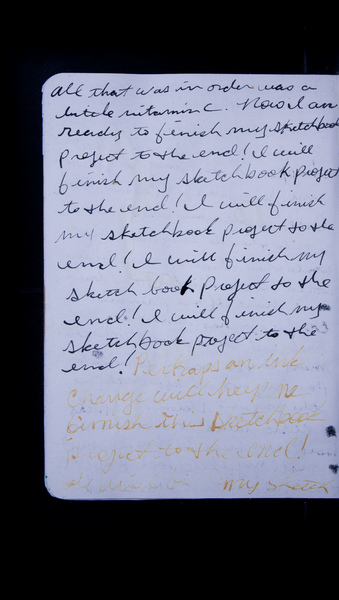 all that was in order was a
little vitamin C. Now I am
ready to finish my sketchbook
project to the end! I will
finish my sketchbook project
to the end! I will finish
my sketchbook project to the
end! I will finish my
sketch book project to the
end! I will finish my
sketchbook project to the
end! Perhaps an ink
change will help me
finish this sketchbook
project to the end!
my sketch